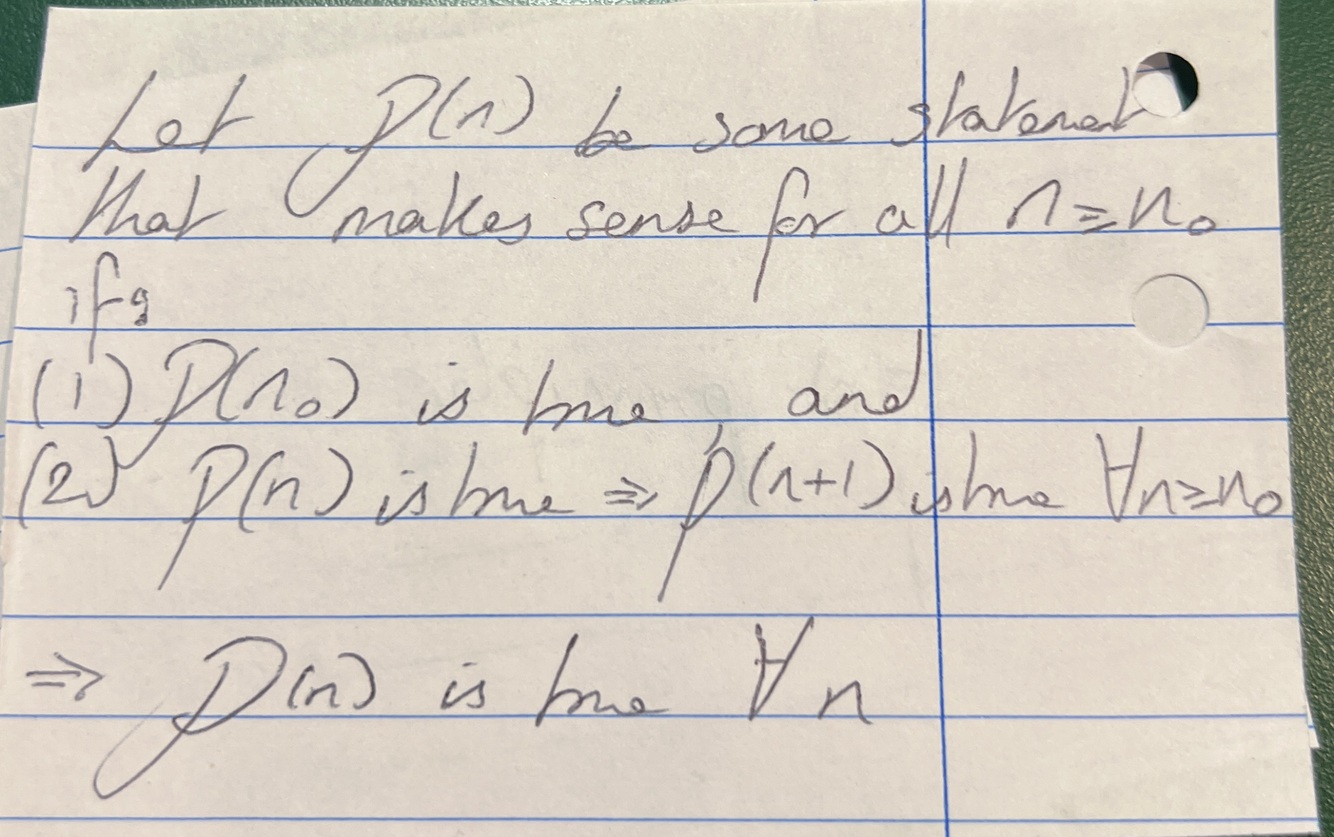 Let P(n) be some statement
that makes sense for all n ≥ n₀
if:
(1) P(n₀) is true and
(2) P(n) is true ⇒ P(n+1) is true ∀n≥n₀
⇒ P(n) is true ∀ n